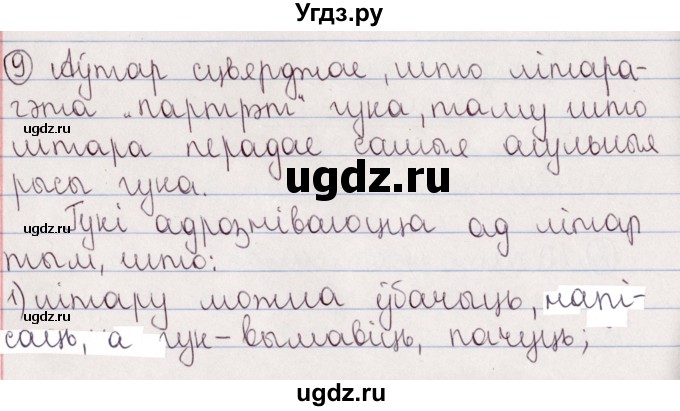 Угдз.ру
9 Аўтар сцвярджае, што літара-
гэта „партрэт“ гука, таму што
ugdz.ru
літара перадае самыя агульныя
ugdz.ru
рысы гука.
ugdz.ru
Гукі адрозніваюцца ад літар
тым, што:
ugdz.ru
1) літару можна ўбачыць, напі-
ugdz.ru
саць, а гук – вымавіць, пачуць;
ugdz.ru